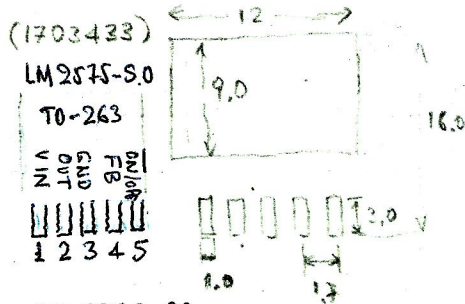 (1703433)
LM2575-5.0
TO-263
VIN OUT GND FB ON/OFF
1 2 3 4 5
12
9.0
16.0
3.0
1.0
1.7